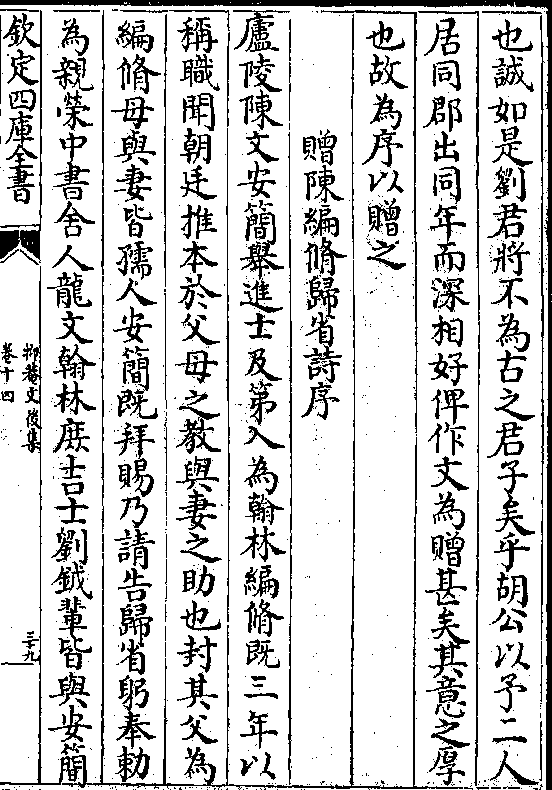 也誠如是劉君將不為古之君子矣乎胡公以予二人
居同郡出同年而深相好俾作文為贈甚矣其意之厚
也故為序以贈之
贈陳編脩歸省詩序
廬陵陳文安簡舉進士及第入為翰林編脩既三年以
稱職聞朝廷推本於父母之教與妻之助也封其父為
編脩母與妻皆孺人安簡既拜賜乃請告歸省躬奉勅
為親榮中書舍人龍文翰林庶吉士劉鉞輩皆與安簡
欽定四庫全書
抑菴文後集
卷十四
三十九